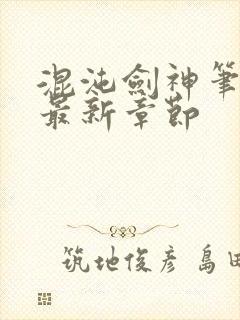 混沌劍神筆
最新章節
筑地俊彦 島田